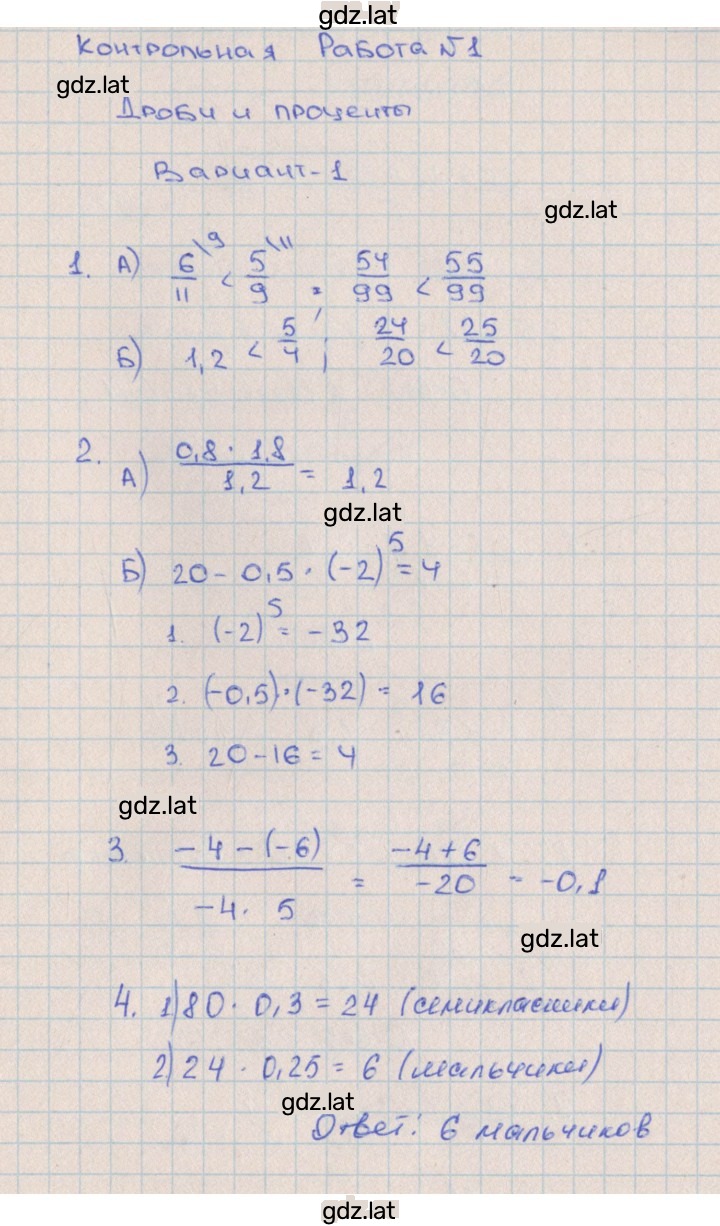 gdz.lat
Контрольная Работа №1
gdz.lat
Дроби и проценты
Вариант-1
gdz.lat
1. А) 6/11 \9 < 5/9 \11 ; 54/99 < 55/99
Б) 1,2 < 5/4 ; 24/20 < 25/20
2. А) 0,8 · 1,8 / 1,2 = 1,2
gdz.lat
Б) 20 - 0,5 · (-2)^5 = 4
1. (-2)^5 = -32
2. (-0,5)·(-32) = 16
3. 20-16 = 4
gdz.lat
3. -4-(-6) / -4· 5 = -4+6 / -20 = -0,1
gdz.lat
4. 1) 80 · 0,3 = 24 (семикласники)
2) 24 · 0,25 = 6 (мальчики)
gdz.lat
Ответ: 6 мальчиков
gdz.lat